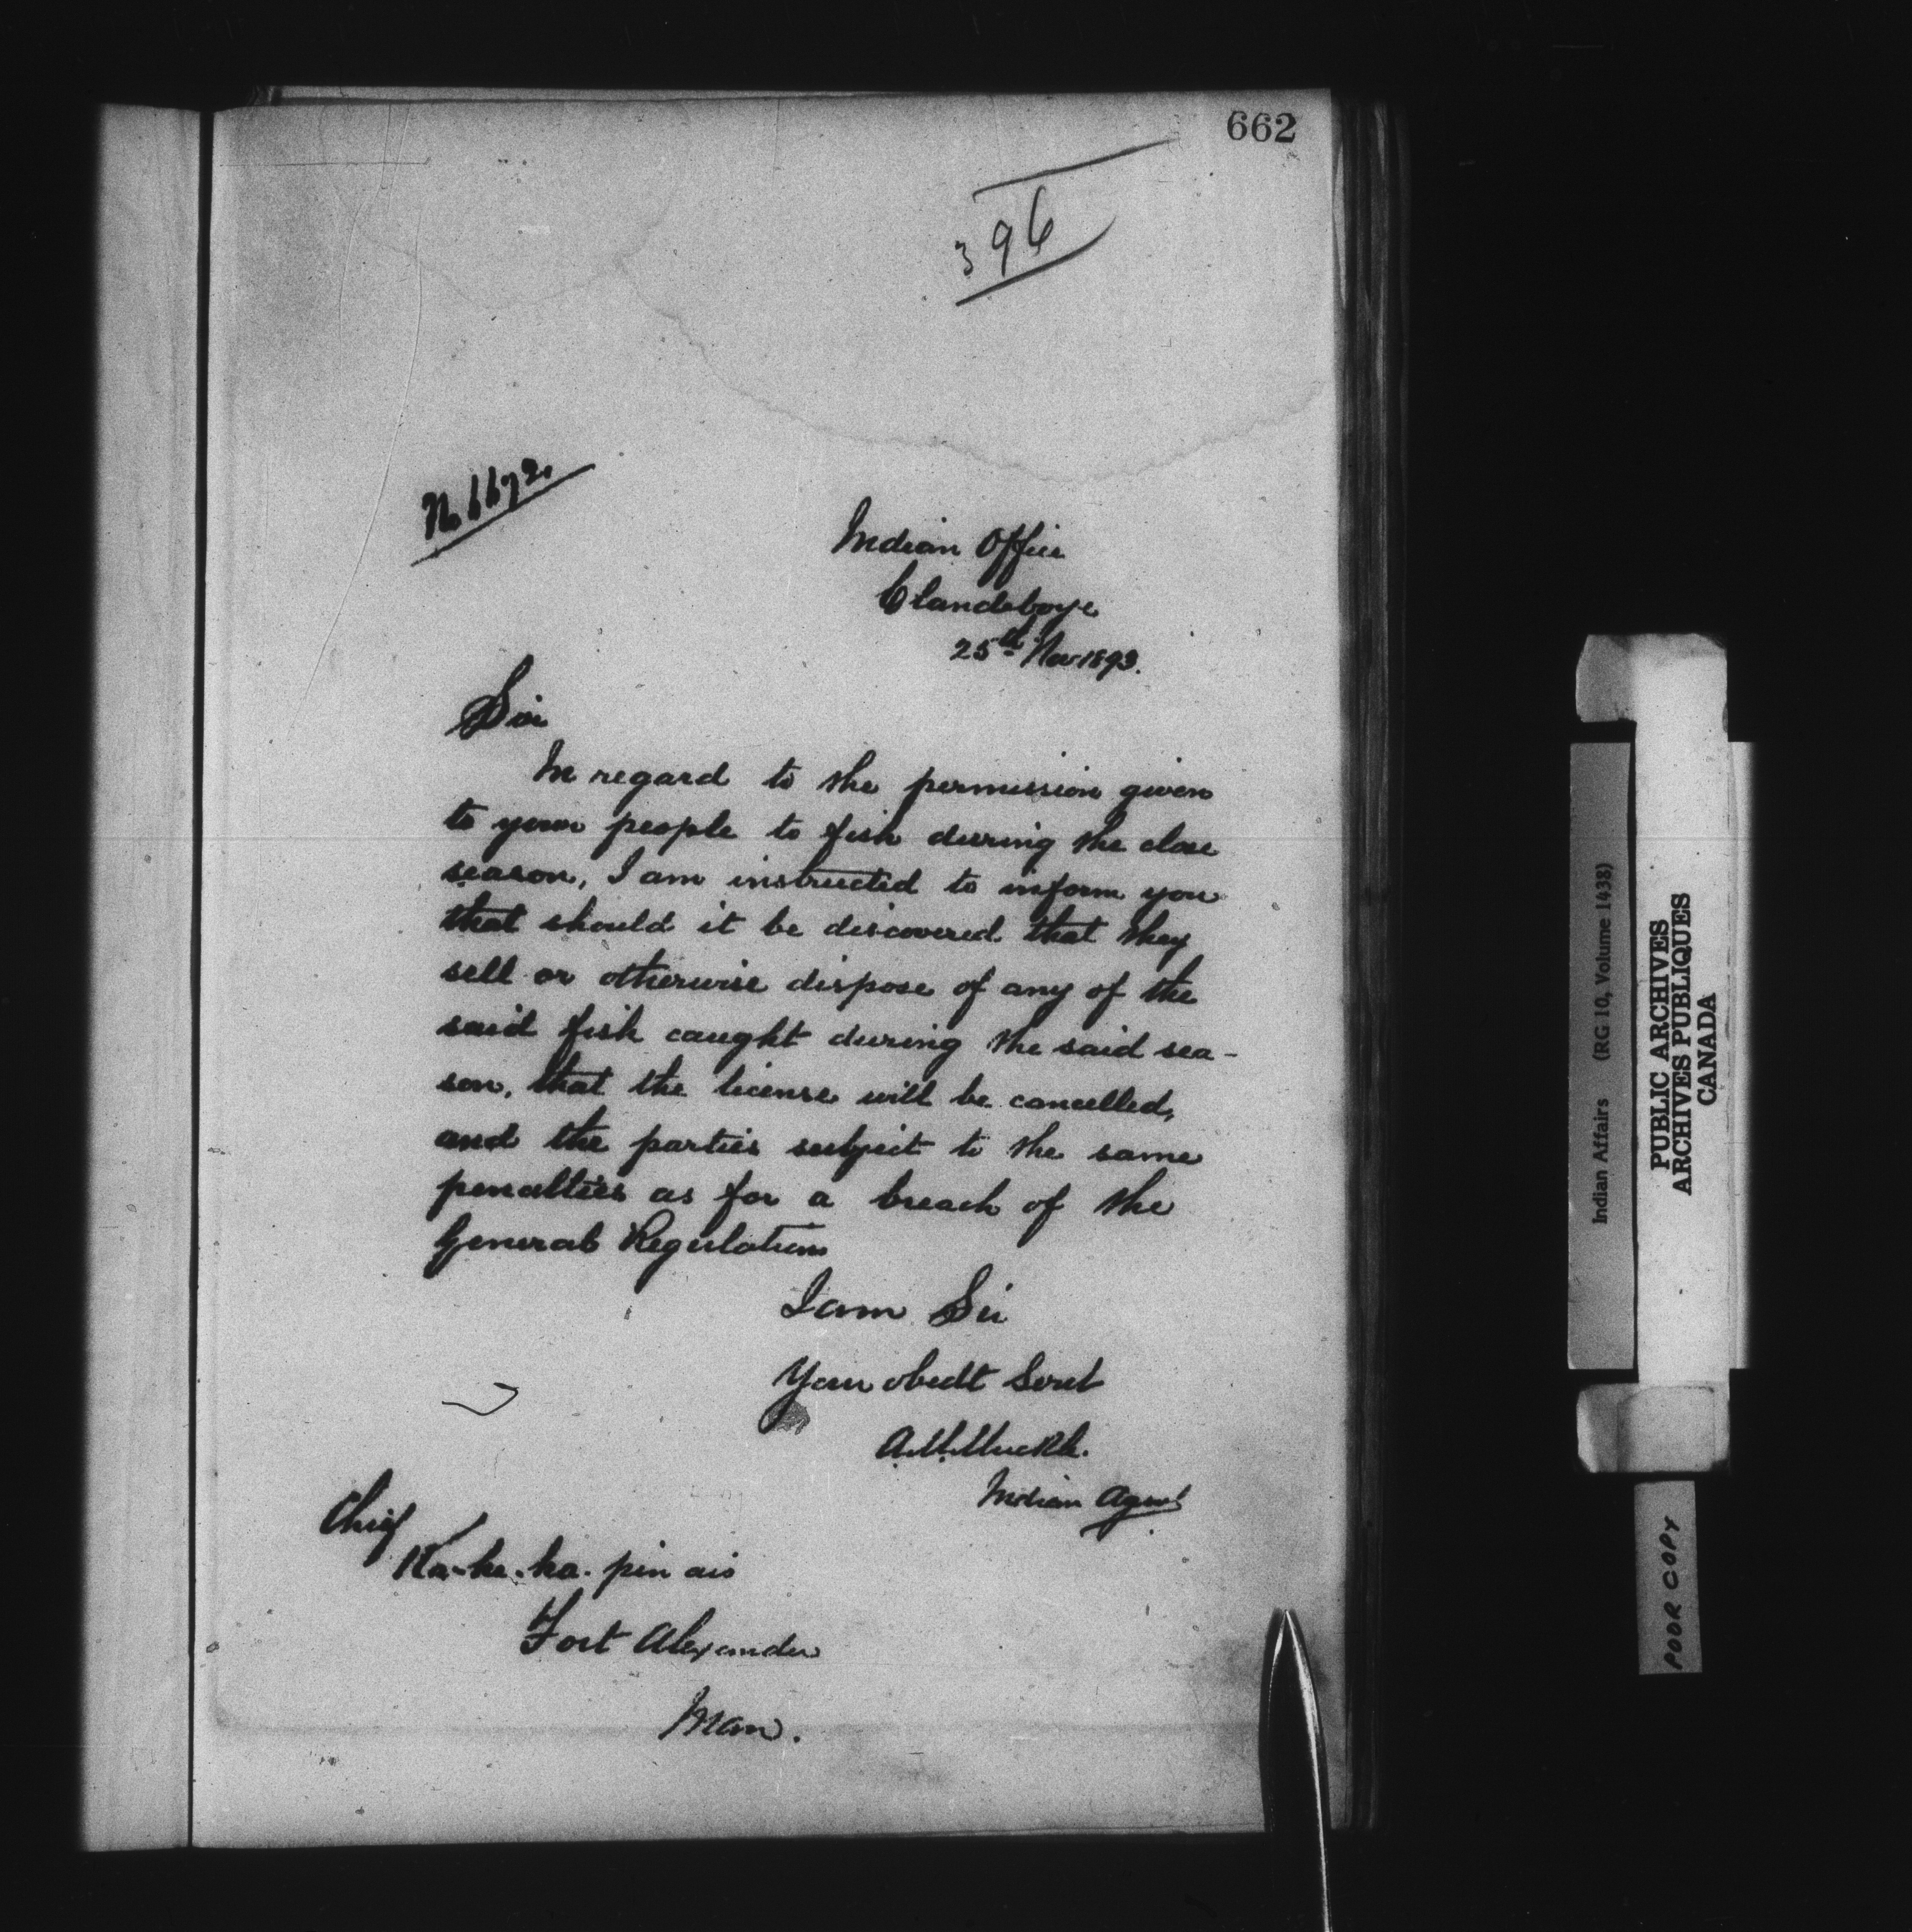 662
396
No 6672.
Indian Office
Clandeboye
25th Nov 1893.
Sir
In regard to the permission given
to your people to fish during the close
season, I am instructed to inform you
that should it be discovered that they
sell or otherwise dispose of any of the
said fish caught during the said sea-
son, that the license will be cancelled,
and the parties subject to the same
penalties as for a breach of the
General Regulations
I am Sir
Your obedt Servt
A.M.Muckle.
Indian Agent
Chief
Ka-ke-ka-pin ais
Fort Alexander
Man.
Indian Affairs (RG 10, Volume 1438)
PUBLIC ARCHIVES
ARCHIVES PUBLIQUES
CANADA
POOR COPY